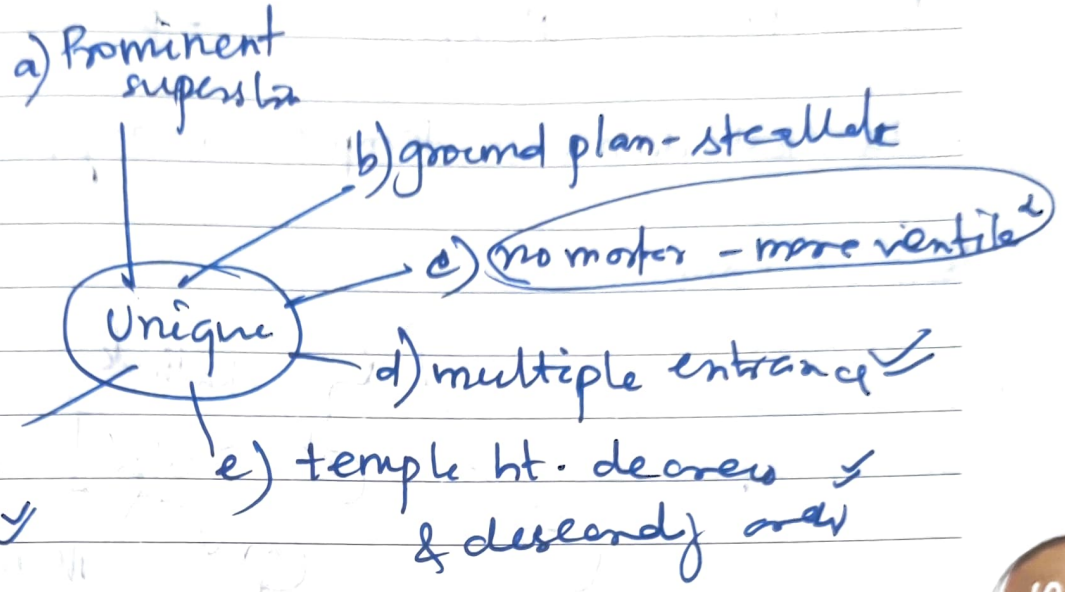 a) Prominent
b) ground plan - steallate
c) no morter - more ventile
Unique
d) multiple entrance
e) temple ht. decrews
& descendg order